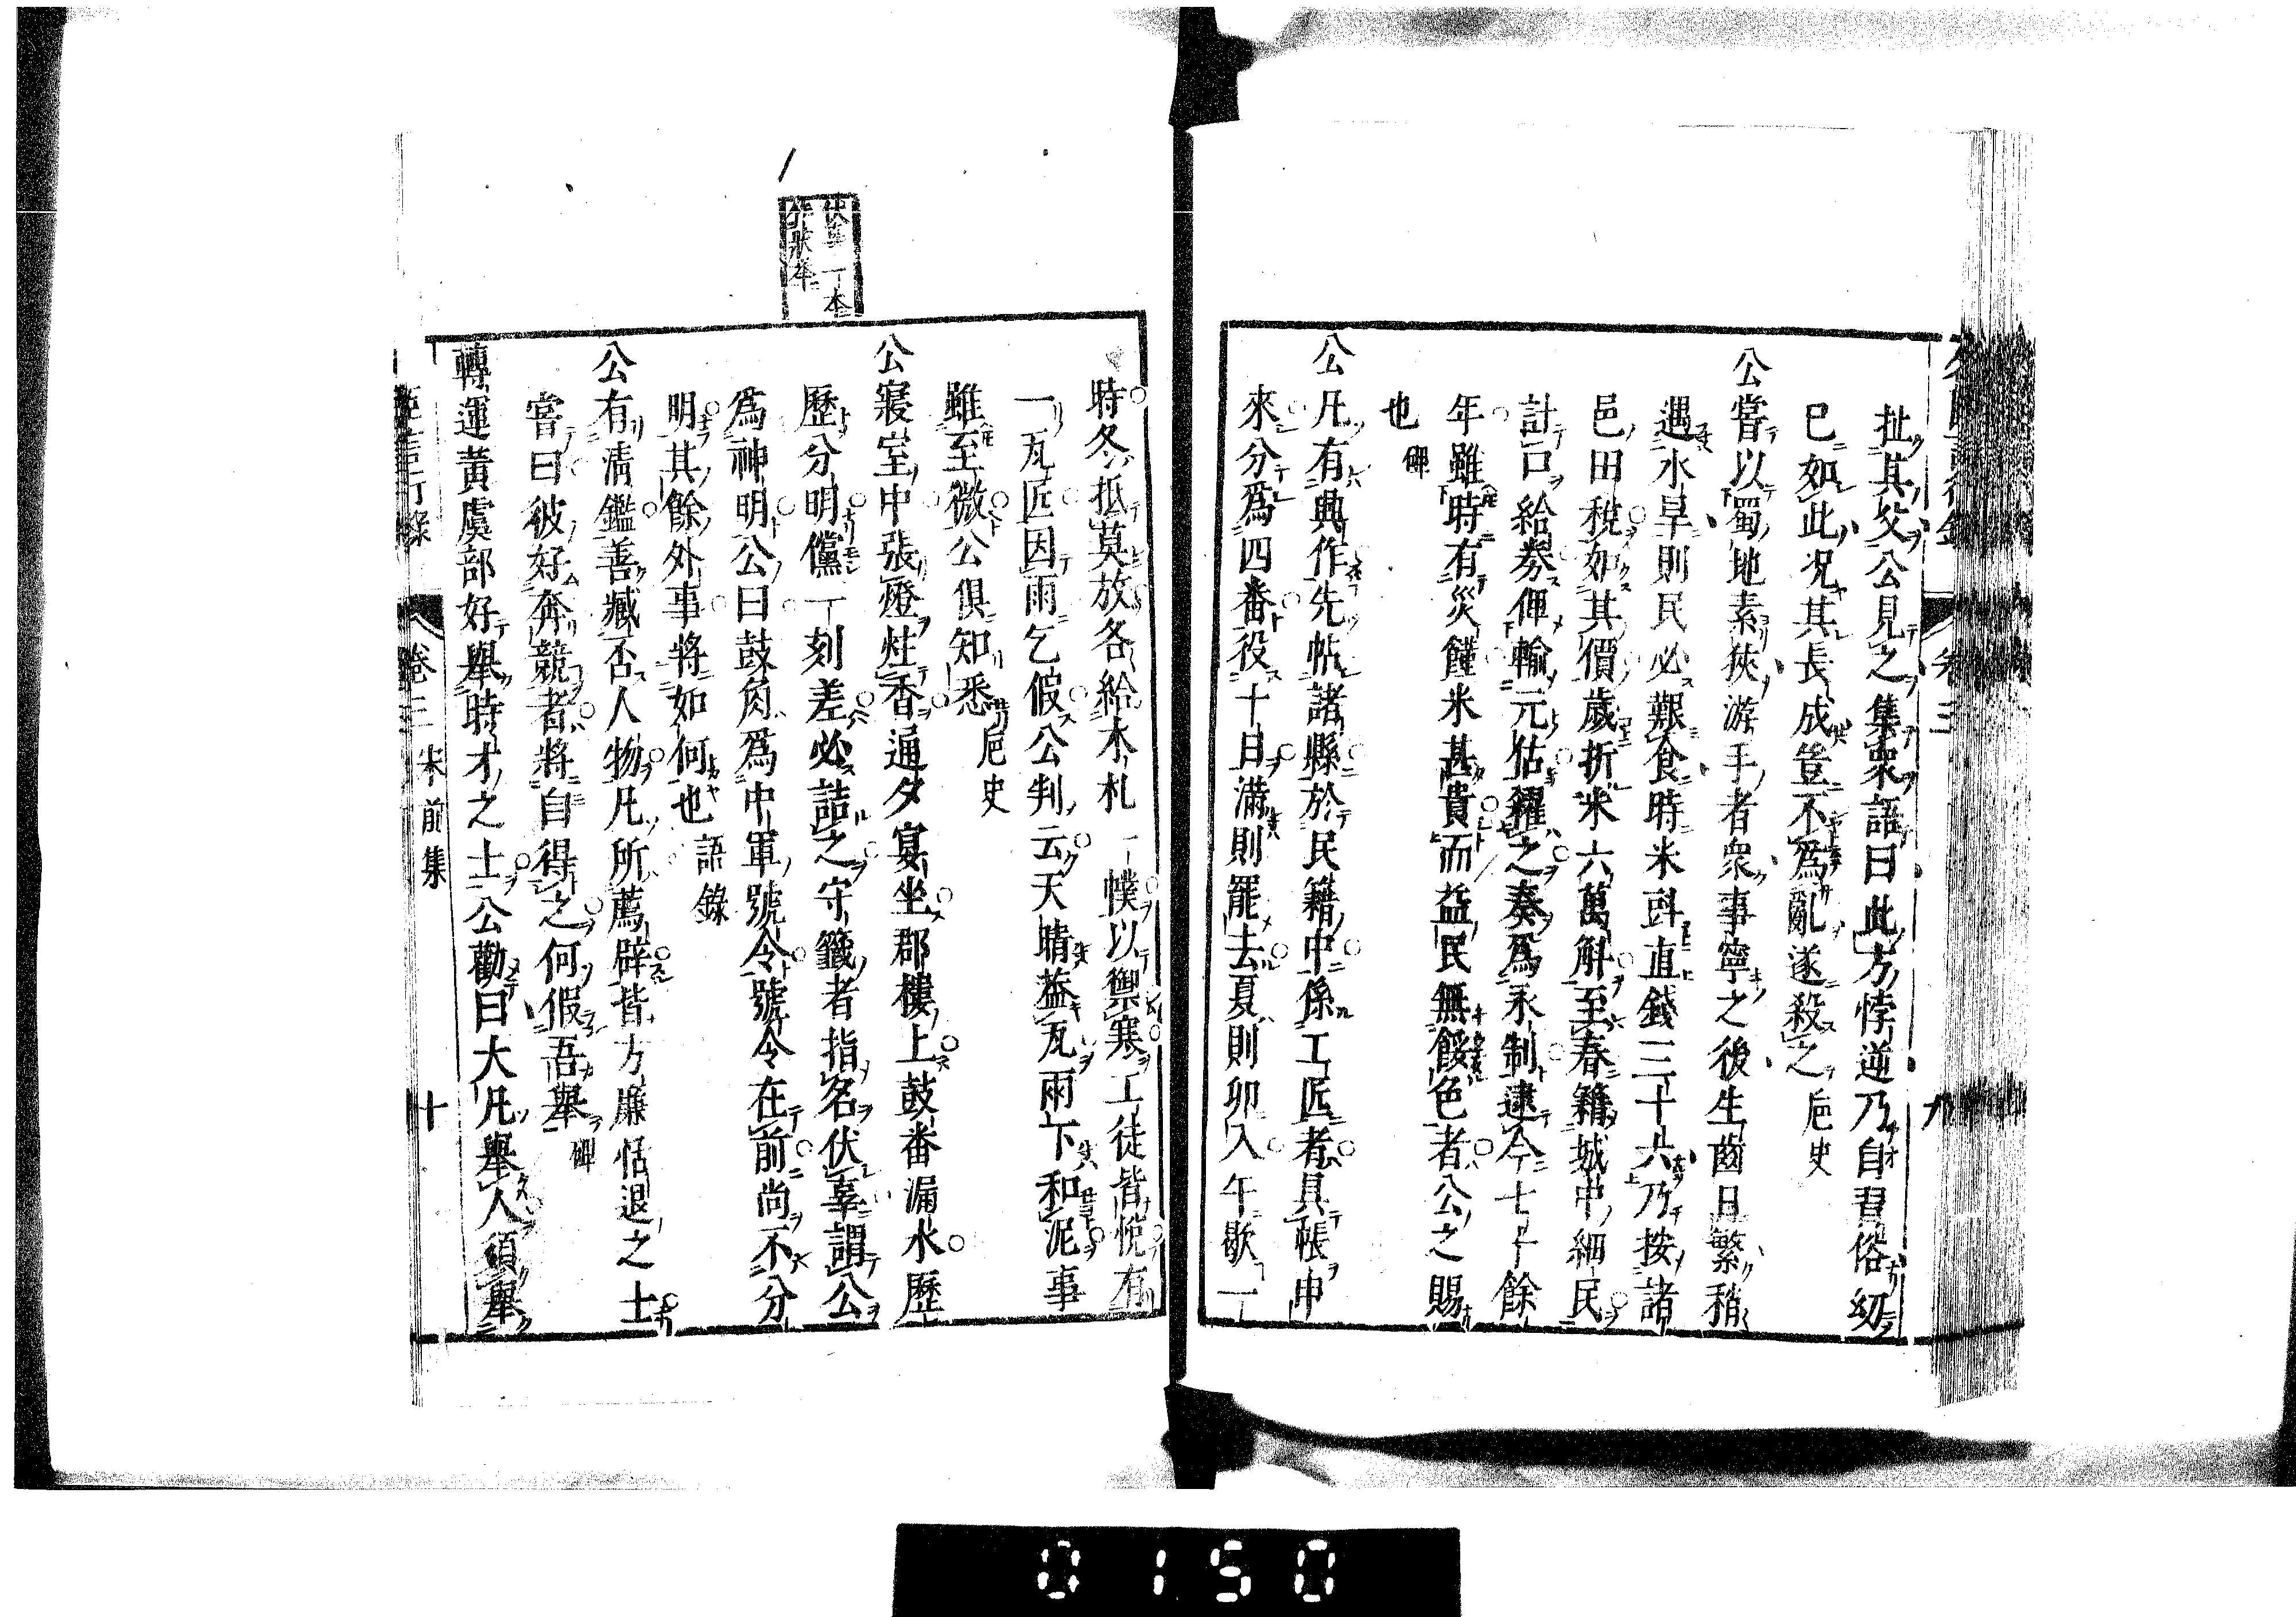 扯其父公見之集衆語曰此方悖逆乃自習俗幼
已如此况其長成豈不爲亂遂殺之 巵史
公嘗以蜀地素狹游手者衆事寧之後生齒日繁稍
遇水旱則民必艱食時米䣂直錢三十六乃按諸
邑田稅如其價歲折米六萬斛至春籍城中細民
計口給劵俾輸元估糴之奏爲永制逮今七十餘
年雖時有災饉米甚貴而益民無餒色者公之賜
也 碑
公凡有興作先帖諸縣於民籍中係工匠者具帳申
來分爲四番役十日滿則罷去夏則卯入午歇一
時冬抵莫放各給木札一幞以禦寒工徒皆悅有
一瓦匠因雨乞假公判云天晴葢瓦雨下和泥事
雖至微公俱知悉 巵史
公寢室中張燈炷香通夕宴坐郡樓上鼓番漏水歷
歷分明儻一刻差必詰之守籤者指名伏辜謂公
爲神明公曰鼓角爲中軍號令號令在前尚不分
明其餘外事將如何也 語錄
公有清鑑善臧否人物凡所薦辟皆方廉恬退之士
嘗曰彼好奔競者將自得之何假吾舉 碑
轉運黃虞部好舉時才之士公勸曰大凡舉人須舉
卷三 宋前集 十
卷三 九
伏辜一本
作狀辜
0150